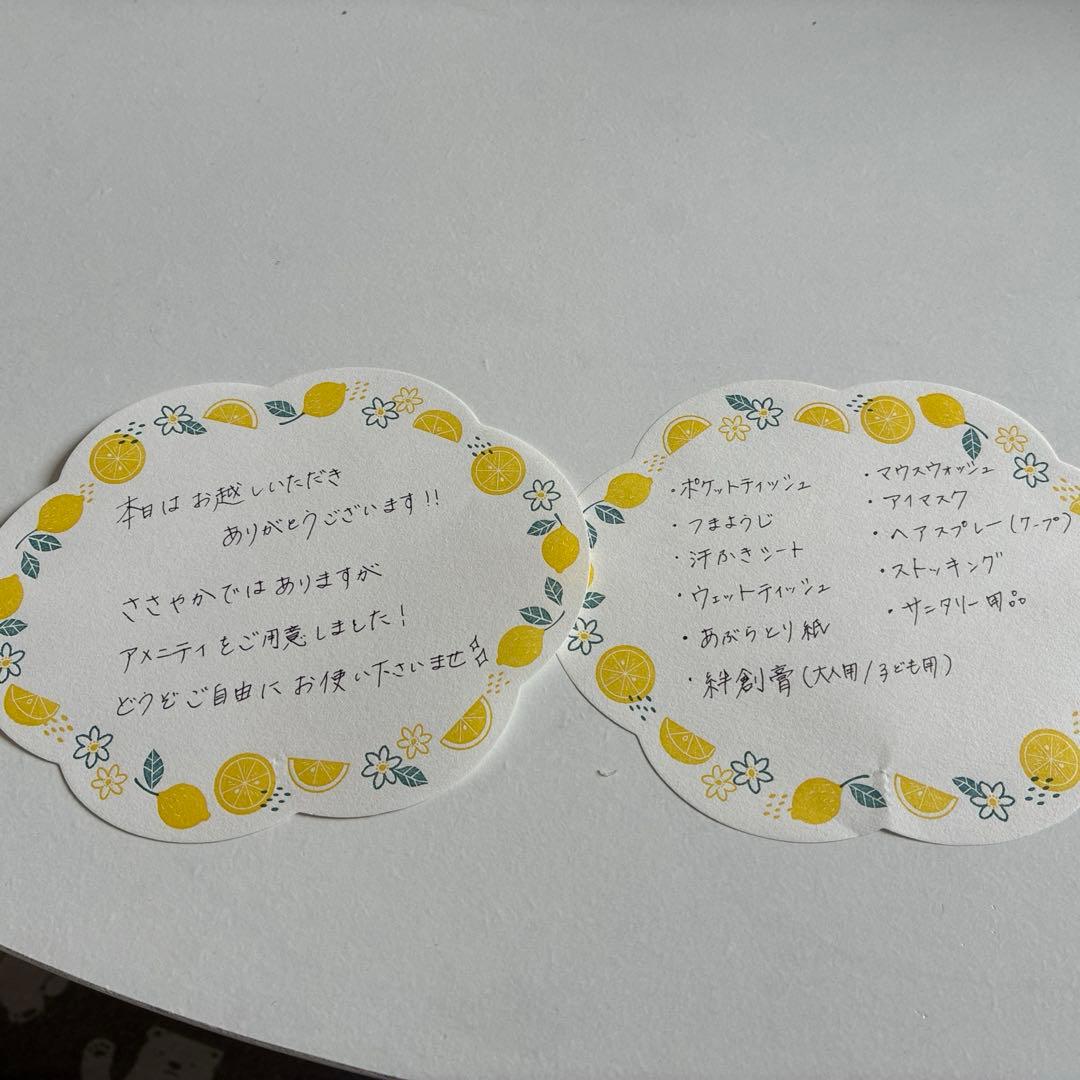 本日はお越しいただき
ありがとうございます!!
ささやかではありますが
アメニティをご用意しました!
どうぞご自由にお使い下さいませ
・ポケットティッシュ
・つまようじ
・汗ふきシート
・ウェットティッシュ
・あぶらとり紙
・絆創膏(大人用/子ども用)
・マウスウォッシュ
・アイマスク
・ヘアスプレー(ケープ)
・ストッキング
・サニタリー用品